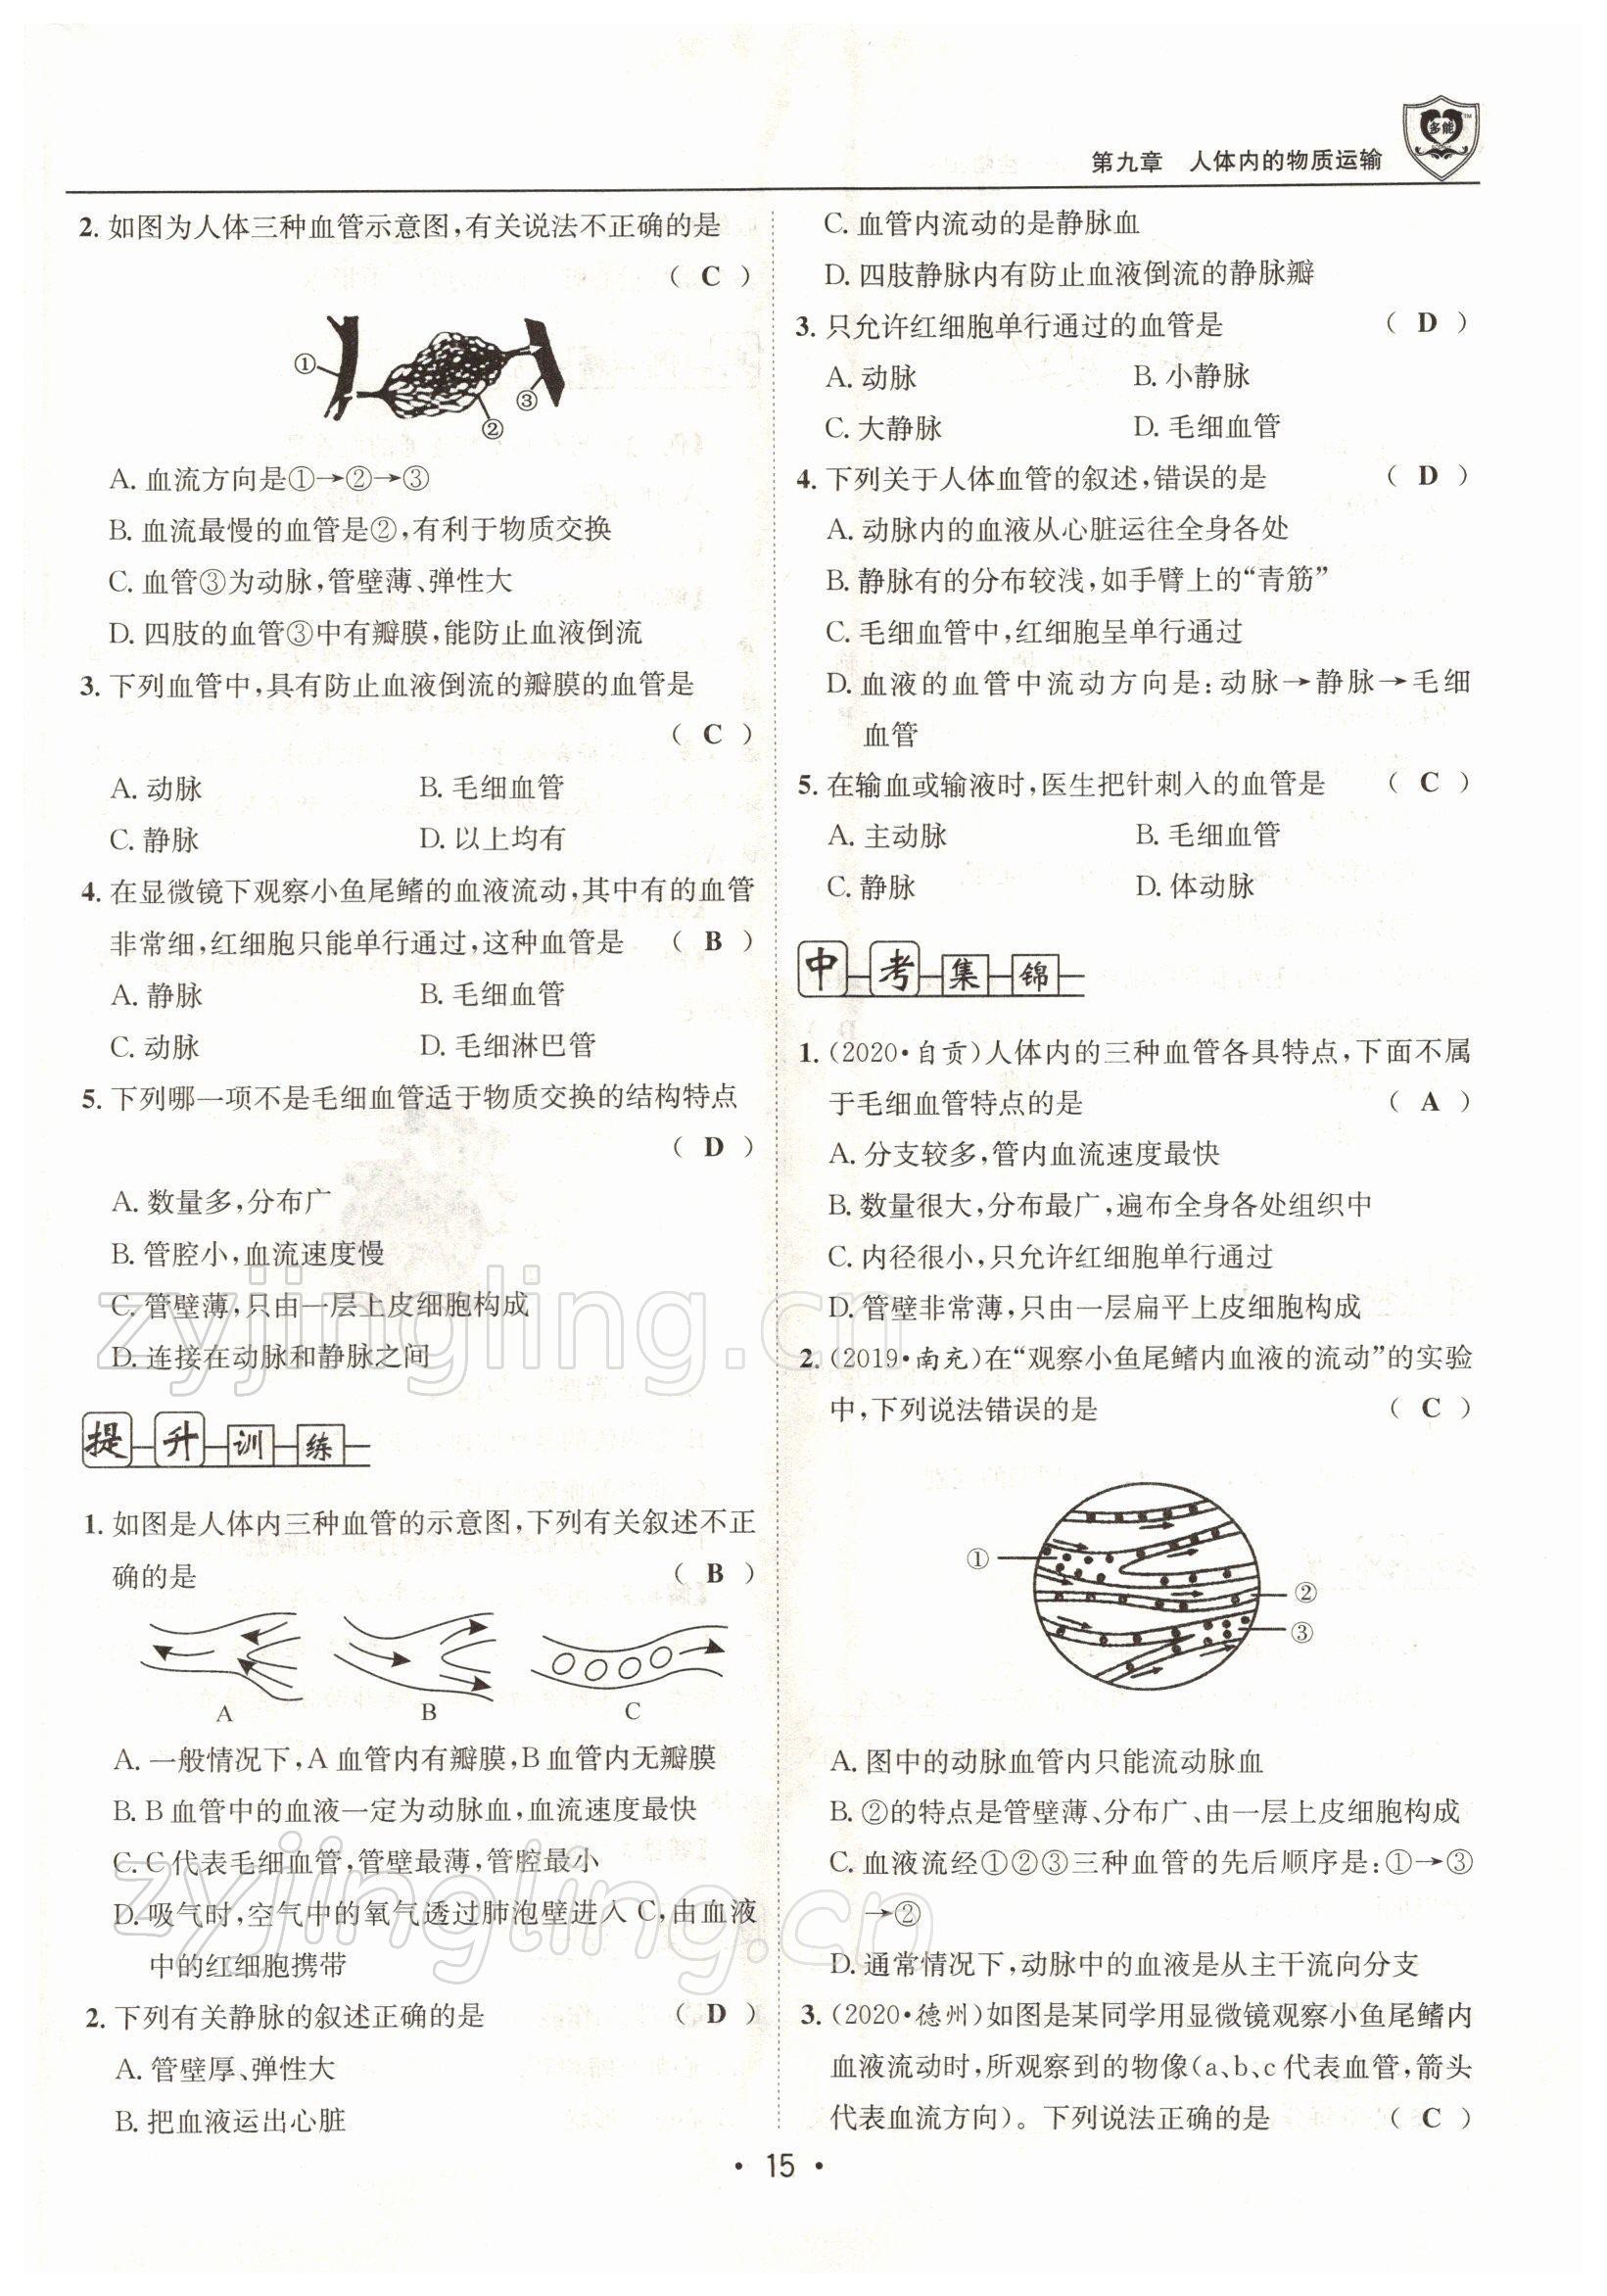 第九章 人体内的物质运输
多能
2. 如图为人体三种血管示意图,有关说法不正确的是
( C )
①
②
③
A. 血流方向是①→②→③
B. 血流最慢的血管是②,有利于物质交换
C. 血管③为动脉,管壁薄、弹性大
D. 四肢的血管③中有瓣膜,能防止血液倒流
3. 下列血管中,具有防止血液倒流的瓣膜的血管是
( C )
A. 动脉 B. 毛细血管
C. 静脉 D. 以上均有
4. 在显微镜下观察小鱼尾鳍的血液流动,其中有的血管
非常细,红细胞只能单行通过,这种血管是 ( B )
A. 静脉 B. 毛细血管
C. 动脉 D. 毛细淋巴管
5. 下列哪一项不是毛细血管适于物质交换的结构特点
( D )
A. 数量多,分布广
B. 管腔小,血流速度慢
C. 管壁薄,只由一层上皮细胞构成
D. 连接在动脉和静脉之间
提升训练
1. 如图是人体内三种血管的示意图,下列有关叙述不正
确的是 ( B )
A B C
A. 一般情况下,A 血管内有瓣膜,B 血管内无瓣膜
B. B 血管中的血液一定为动脉血,血流速度最快
C. C 代表毛细血管,管壁最薄,管腔最小
D. 吸气时,空气中的氧气透过肺泡壁进入 C,由血液
中的红细胞携带
2. 下列有关静脉的叙述正确的是 ( D )
A. 管壁厚、弹性大
B. 把血液运出心脏
C. 血管内流动的是静脉血
D. 四肢静脉内有防止血液倒流的静脉瓣
3. 只允许红细胞单行通过的血管是 ( D )
A. 动脉 B. 小静脉
C. 大静脉 D. 毛细血管
4. 下列关于人体血管的叙述,错误的是 ( D )
A. 动脉内的血液从心脏运往全身各处
B. 静脉有的分布较浅,如手臂上的“青筋”
C. 毛细血管中,红细胞呈单行通过
D. 血液的血管中流动方向是:动脉→静脉→毛细
血管
5. 在输血或输液时,医生把针刺入的血管是 ( C )
A. 主动脉 B. 毛细血管
C. 静脉 D. 体动脉
中考集锦
1. (2020·自贡)人体内的三种血管各具特点,下面不属
于毛细血管特点的是 ( A )
A. 分支较多,管内血流速度最快
B. 数量很大,分布最广,遍布全身各处组织中
C. 内径很小,只允许红细胞单行通过
D. 管壁非常薄,只由一层扁平上皮细胞构成
2. (2019·南充)在“观察小鱼尾鳍内血液的流动”的实验
中,下列说法错误的是 ( C )
①
②
③
A. 图中的动脉血管内只能流动脉血
B. ②的特点是管壁薄、分布广、由一层上皮细胞构成
C. 血液流经①②③三种血管的先后顺序是:①→③
→②
D. 通常情况下,动脉中的血液是从主干流向分支
3. (2020·德州)如图是某同学用显微镜观察小鱼尾鳍内
血液流动时,所观察到的物像(a、b、c 代表血管,箭头
代表血流方向)。下列说法正确的是 ( C )
· 15 ·
zyjingling.cn
zyjingling.cn